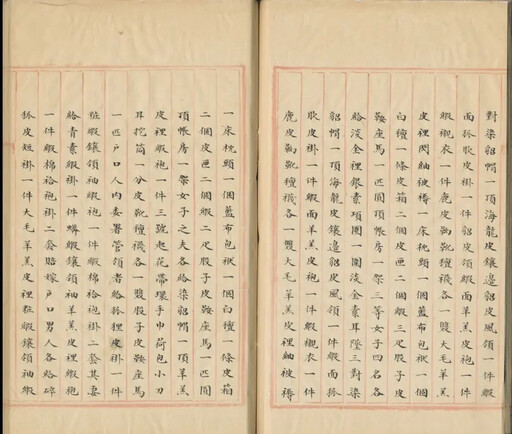 對染貂帽一頂海龍皮鑲邊貂皮風領一件緞
面狐肷皮褂一件貂皮領緞面羊羔皮袍一件
緞襯衣一件鹿皮靴靴氊襪各一雙大毛羊羔
皮裡閃紬被褥一床枕頭一個藍布包袱一個
白氊一條皮箱二個皮匣二個緞三疋股子皮
鞍座馬一匹圓頂帳房一架三等女子四名各
給淡金裡銀素項圈一圍淡金素耳墜三對染
貂帽一頂海龍皮鑲邊貂皮風領一件緞面狐
肷皮褂一件緞面羊羔皮袍一件緞襯衣一件
鹿皮靴靴氊襪各一雙大毛羊羔皮裡紬被褥
一床枕頭一個藍布包袱一個白氊一條皮箱
二個皮匣二個緞二疋股子皮鞍座馬一匹圓
頂帳房一架女子之夫各給染貂帽一頂羊羔
皮裡緞袍一件三號起花帶環手巾荷包小刀
耳挖筒一分皮靴氊襪各一雙股子皮鞍座馬
一匹戶口人內委署管領者給狐狸皮褂一件
粧緞鑲領袖緞袍一件緞棉袷袍褂二套其妻
給青素緞褂一件蟒緞鑲領袖羊羔皮裡緞袍
一件緞棉袷袍褂二套賠嫁戶口男人各給碎
狐皮短褂一件大毛羊羔皮裡粧緞鑲領袖緞